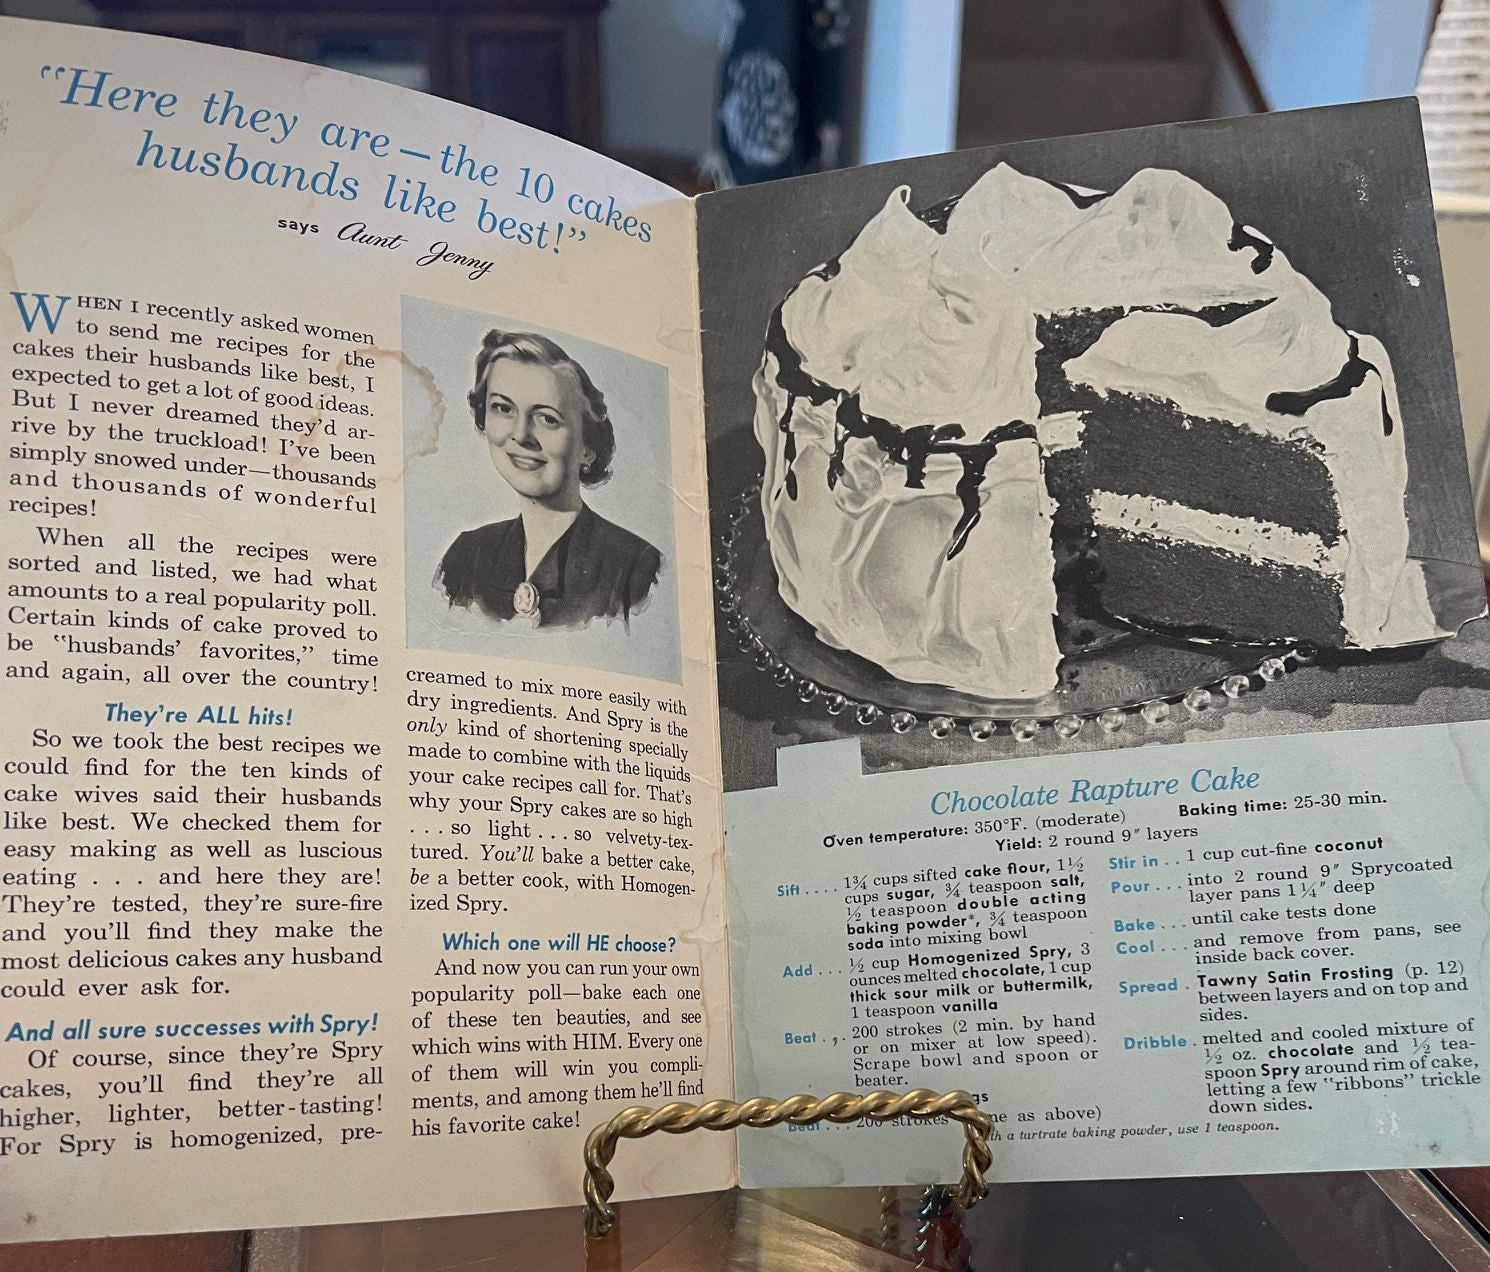 “Here they are—the 10 cakes
husbands like best!”
says Aunt Jenny
WHEN I recently asked women
to send me recipes for the
cakes their husbands like best, I
expected to get a lot of good ideas.
But I never dreamed they’d ar-
rive by the truckload! I’ve been
simply snowed under—thousands
and thousands of wonderful
recipes!
When all the recipes were
sorted and listed, we had what
amounts to a real popularity poll.
Certain kinds of cake proved to
be “husbands’ favorites,” time
and again, all over the country!
They’re ALL hits!
So we took the best recipes we
could find for the ten kinds of
cake wives said their husbands
like best. We checked them for
easy making as well as luscious
eating . . . and here they are!
They’re tested, they’re sure-fire
and you’ll find they make the
most delicious cakes any husband
could ever ask for.
And all sure successes with Spry!
Of course, since they’re Spry
cakes, you’ll find they’re all
higher, lighter, better-tasting!
For Spry is homogenized, pre-
creamed to mix more easily with
dry ingredients. And Spry is the
only kind of shortening specially
made to combine with the liquids
your cake recipes call for. That’s
why your Spry cakes are so high
. . . so light . . . so velvety-tex-
tured. You’ll bake a better cake,
be a better cook, with Homogen-
ized Spry.
Which one will HE choose?
And now you can run your own
popularity poll—bake each one
of these ten beauties, and see
which wins with HIM. Every one
of them will win you compli-
ments, and among them he’ll find
his favorite cake!
Chocolate Rapture Cake
Oven temperature: 350°F. (moderate) Baking time: 25-30 min.
Yield: 2 round 9″ layers
Sift .... 1¾ cups sifted cake flour, 1½
cups sugar, ¾ teaspoon salt,
½ teaspoon double acting
baking powder*, ¾ teaspoon
soda into mixing bowl
Add ... ½ cup Homogenized Spry, 3
ounces melted chocolate, 1 cup
thick sour milk or buttermilk,
1 teaspoon vanilla
Beat . . . 200 strokes (2 min. by hand
or on mixer at low speed).
Scrape bowl and spoon or
beater.
Beat . . . 200 strokes as above)
with a tartrate baking powder, use 1 teaspoon.
Stir in . . 1 cup cut-fine coconut
Pour . . . into 2 round 9″ Sprycoated
layer pans 1¼″ deep
Bake . . . until cake tests done
Cool . . . and remove from pans, see
inside back cover.
Spread . Tawny Satin Frosting (p. 12)
between layers and on top and
sides.
Dribble . melted and cooled mixture of
½ oz. chocolate and ½ tea-
spoon Spry around rim of cake,
letting a few “ribbons” trickle
down sides.